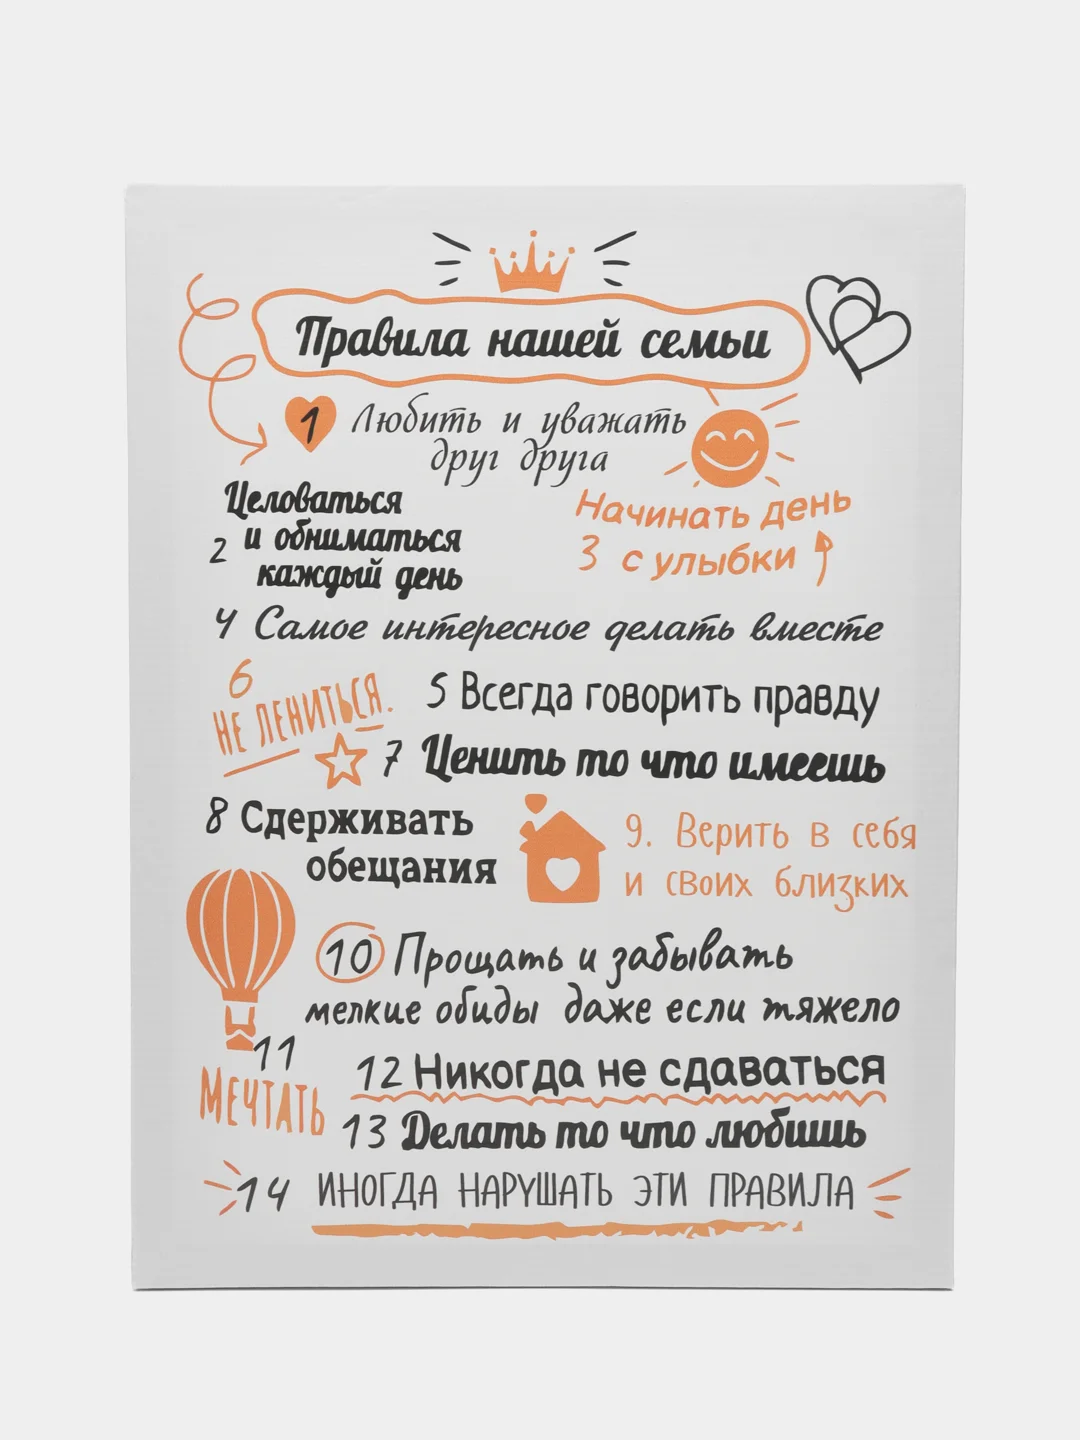 Правила нашей семьи
1 Любить и уважать
друг друга
Целоваться
2 и обниматься
каждый день
Начинать день
3 с улыбки
4 Самое интересное делать вместе
5 Всегда говорить правду
6
НЕ ЛЕНИТЬСЯ.
7 Ценить то что имеешь
8 Сдерживать
обещания
9. Верить в себя
и своих близких
10 Прощать и забывать
мелкие обиды даже если тяжело
11
МЕЧТАТЬ
12 Никогда не сдаваться
13 Делать то что любишь
14 ИНОГДА НАРУШАТЬ ЭТИ ПРАВИЛА